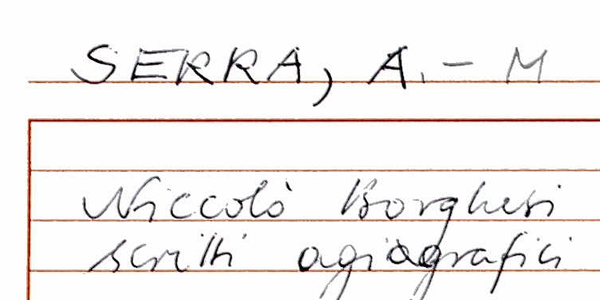 SERRA, A. - M
Niccolò Borghesi
scritti agiografici